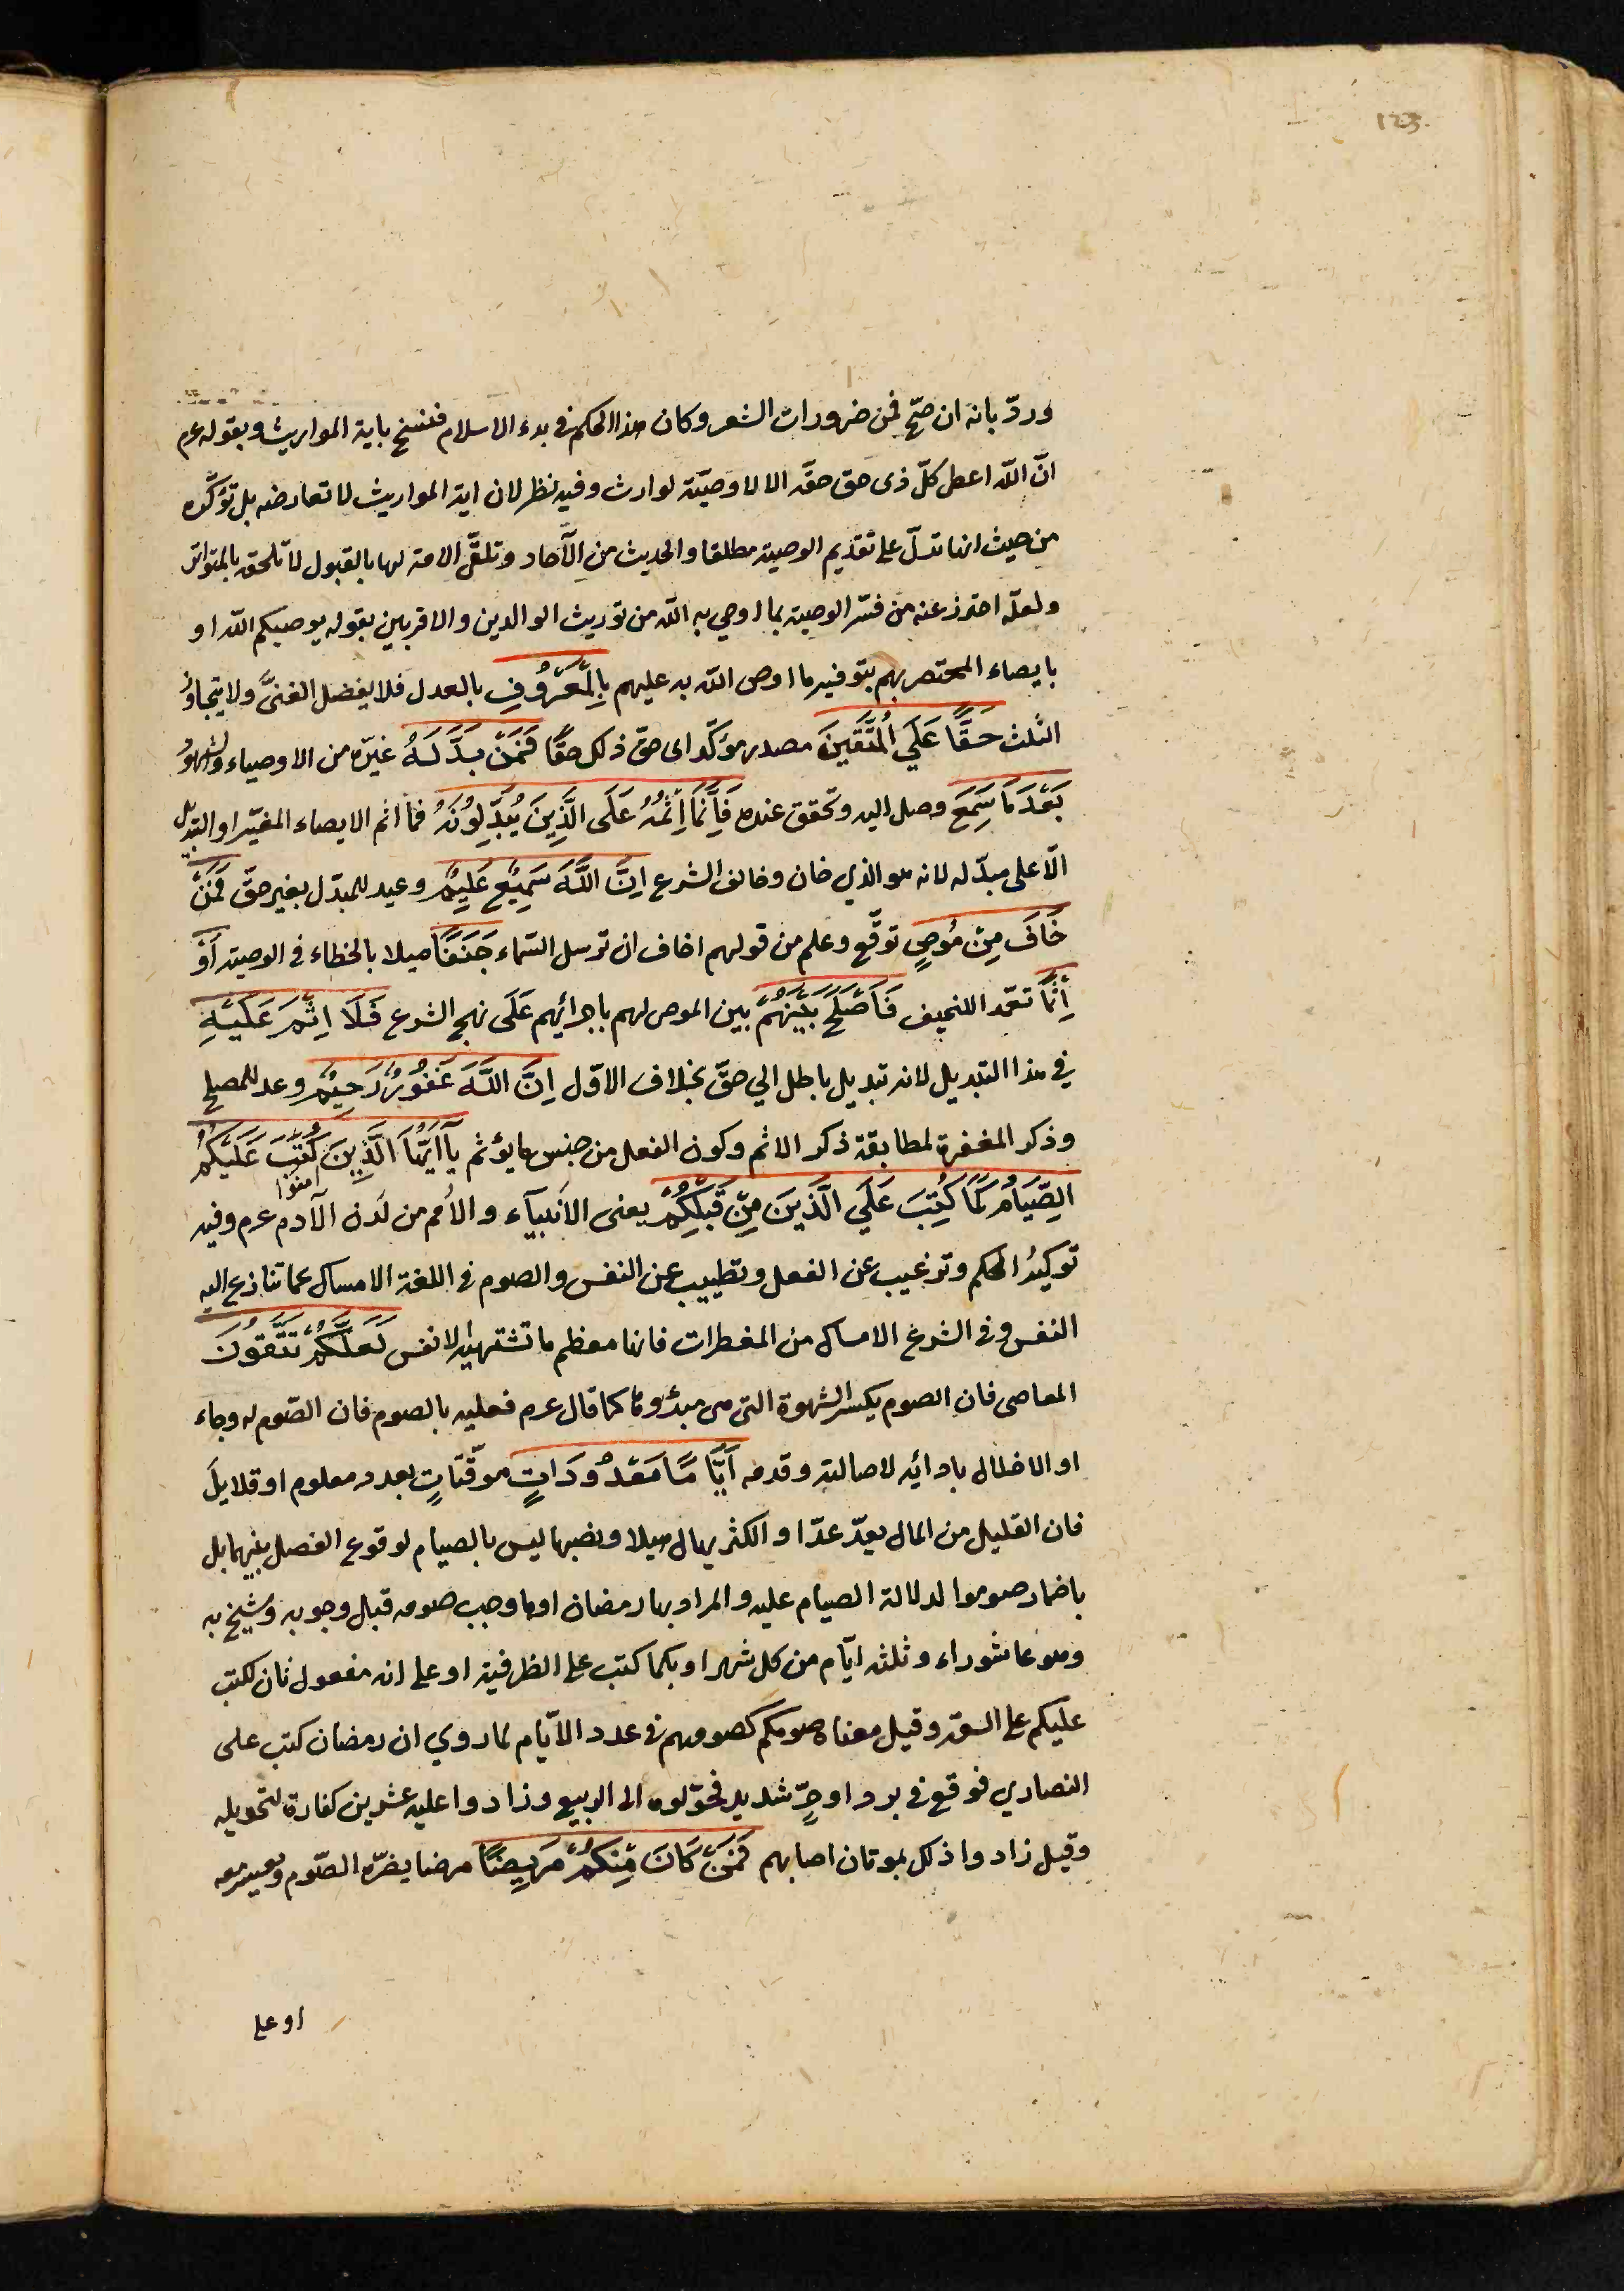 123
وردّ بانه ان صحّ فمن ضرورات الشعر وكان هذا الحكم فى بدء الاسلام فنسخ باية المواريث وبقوله عم
انّ اللّه اعطى كلّ ذى حق حقّه الا لا وصيّة لوارث وفيه نظر لان اية المواريث لا تعارضه بل تؤكّده
من حيث انها تدلّ على تقديم الوصية مطلقا والحديث من الآحاد وتلقّى الامة لها بالقبول لا تلحقه بالمتواتر
ولعلّه احترز عنه من فسّر الوصية بما اوصي به اللّه من توريث الوالدين والاقربين بقوله يوصيكم اللّه او
بايصاء المحتضر بهم بتوفير ما اوصى اللّه به عليهم بِالْمَعْرُوفِ بالعدل فلا يفضل الغنىّ ولا يتجاوز
الثلث حَقًّا عَلَي الْمُتَّقِينَ مصدر مؤكّد اى حقّ ذلك حقًّا فَمَنْ بَدَّلَهُ غيّره من الاوصياء والشهود
بَعْدَ مَا سَمِعَ وصل اليه وتحقق عنده فَاِنَّمَا اِثْمُهُ عَلَى الَّذِينَ يُبَدِّلُونَهُ فما اثم الايصاء المغيّر او التبديل
الّا على مبدّله لانه هو الذي خان وخالف الشرع اِنَّ اللَّهَ سَمِيْعٌ عَلِيْمٌ وعيد للمبدّل بغير حقّ فَمَنْ
خَافَ مِنْ مُوصٍ توقّع وعلم من قولهم اخاف ان ترسل السّماء جَنَفًا ميلا بالخطاء فى الوصية اَوْ
اِثْمًا تعمّد اللنحيف فَاَصْلَحَ بَيْنَهُمْ بين الموصى لهم باجرائهم عَلَى نهج الشرع فَلَا اِثْمَ عَلَيْهِ
في هذا التبديل لانه تبديل باطل الي حقّ بخلاف الاوّل اِنَّ اللَّهَ غَفُوْرٌ رَحِيْمٌ وعد للمصلح
وذكر المغفرة لمطابقة ذكر الاثم وكون الفعل من جنس ما يؤثم يَآ اَيُّهَا الَّذِينَ امنوا كُتِبَ عَلَيْكُمُ
الصِّيَامُ كَمَا كُتِبَ عَلَي الَّذِينَ مِنْ قَبْلِكُمْ يعنى الانبيآء والأمم من لدن الآدم عم وفيه
توكيدُ الحكم وترغيب عن الفعل وتطييب عن النفس والصوم فى اللغة الامساك عما تنازع اليه
النفس وفى الشرع الامساك من المفطرات فانها معظم ما تشتهيه الانفس لَعَلَّكُمْ تَتَّقُونَ
المعاصى فان الصوم يكسر الشهوة التى هى مبدؤها كما قال عم فعليه بالصوم فان الصّوم له وجاء
او الاخلال بادائه لاصالته وقدمه اَيَّامًا مَعْدُودَاتٍ موقّتاتٍ بعدد معلوم او قلايل
فان القليل من المال يعدّ عدّا والكثر يهال هيلا ونصبها ليس بالصيام لوقوع الفصل بينهما بل
باضمار صوموا لدلالة الصيام عليه والمراد بها رمضان او ما وجب صومه قبل وجوبه ونسخ به
وهو عاشوراء وثلثه ايّام من كل شهر او بكما كتب على الظرفية او على انه مفعول ثان لكتب
عليكم على السعة وقيل معناه صومكم كصومهم فى عدد الايّام لما روي ان رمضان كتب على
النصاري فوقع فى برد او حرّ شديد فحوّلوه الى الربيع وزادوا عليه عشرين كفارة لتحويله
وقيل زادوا ذلك لموتان اصابهم فَمَنْ كَانَ مِنْكُمْ مَرِيضًا مرضا يضرّه الصّوم ويعسر معه
او على